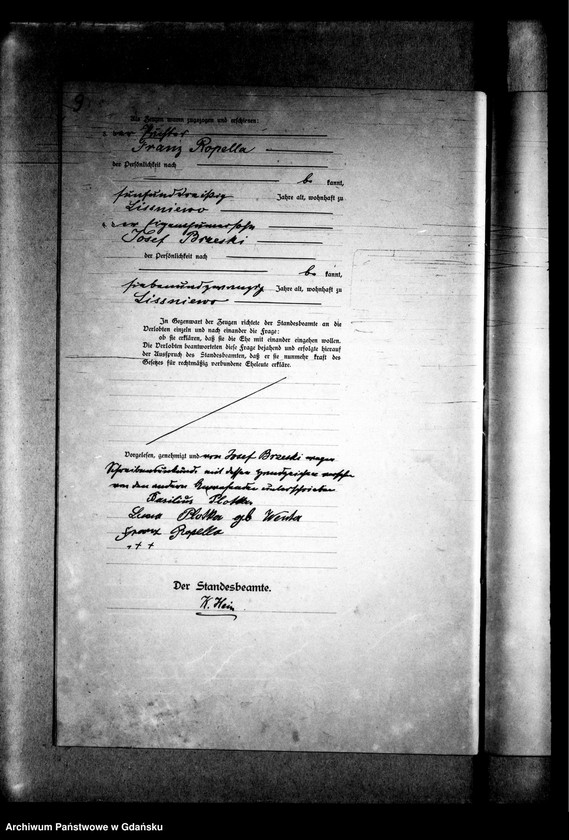 9
Als Zeugen waren zugezogen und erschienen:
der Pächter
Franz Ropella
der Persönlichkeit nach
be kannt,
fünfunddreißig Jahre alt, wohnhaft zu
Lissniewo
der Eigenthümersohn
Josef Brzeski
der Persönlichkeit nach
be kannt,
siebenundzwanzig Jahre alt, wohnhaft zu
Lissniewo
In Gegenwart der Zeugen richtete der Standesbeamte an die
Verlobten einzeln und nach einander die Frage:
ob sie erklären, daß sie die Ehe mit einander eingehen wollen.
Die Verlobten beantworteten diese Frage bejahend und erfolgte hierauf
der Ausspruch des Standesbeamten, daß er sie nunmehr kraft des
Gesetzes für rechtmäßig verbundene Eheleute erkläre.
Vorgelesen, genehmigt und von Josef Brzeski wegen
Schreibensunkunde mit dessen Handzeichen versehen
von den andern unterschrieben
Basilius Plotka
Plotka geb Wenta
Franz Ropella
+++
Der Standesbeamte.
K. Hein
Archiwum Państwowe w Gdańsku